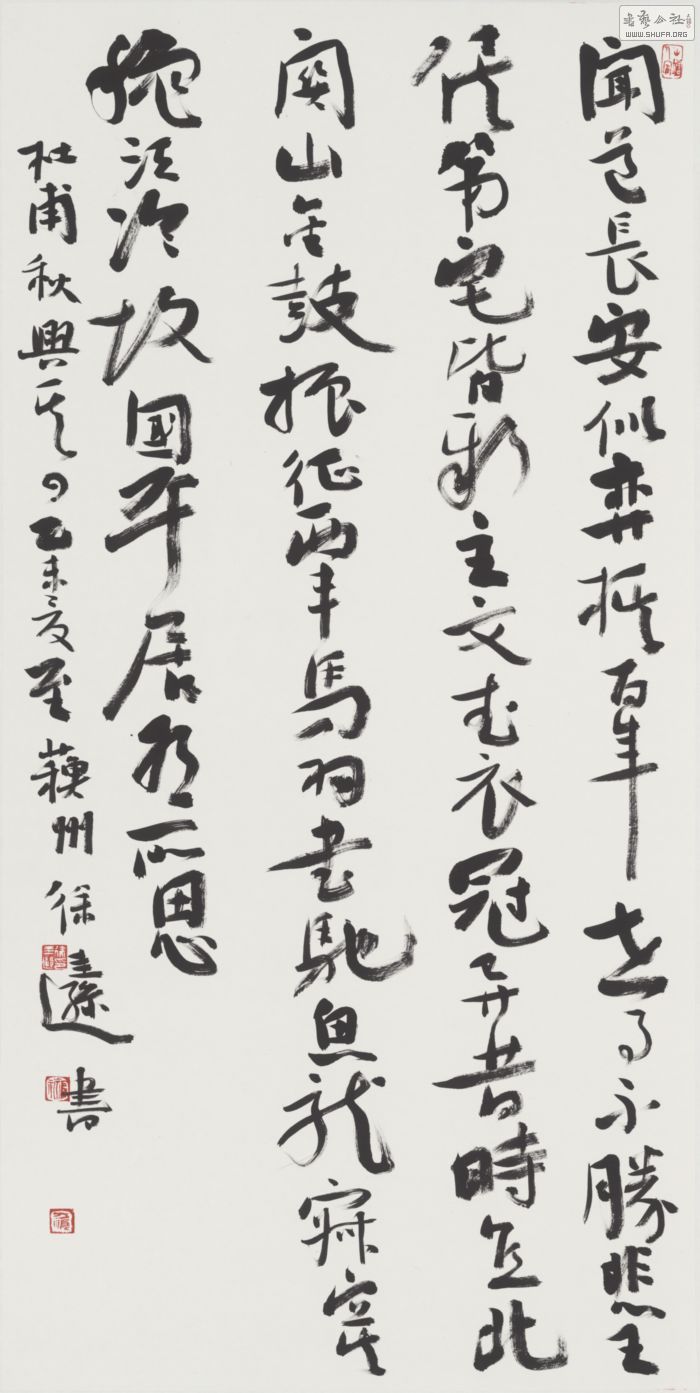 聞道長安似弈棋百年世事不勝悲王
侯第宅皆新主文武衣冠異昔時直北
關山金鼓振征西車馬羽書馳魚龍寂寞
秋江冷故國平居有所思
杜甫秋興其四乙未夏至蘇州徐圭遜書
書藝公社
WWW.SHUFA.ORG